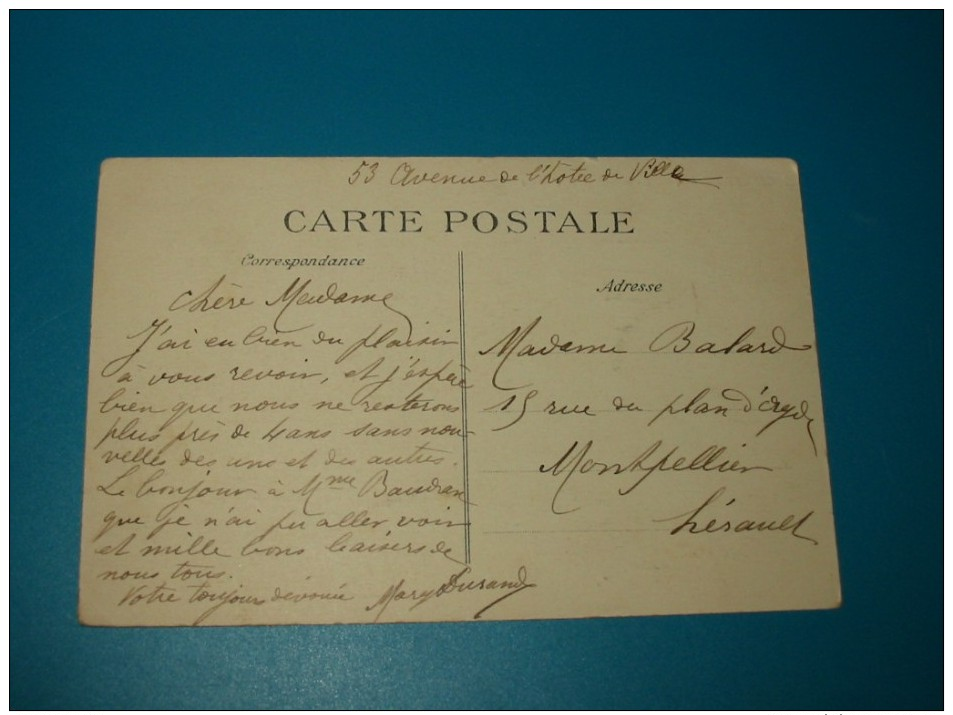 53 Avenue de l'hotel de Ville
CARTE POSTALE
Correspondance
Chère Madame
J'ai eu bien du plaisir
à vous revoir, et j'espère
bien que nous ne resterons
plus près de 4 ans sans nou-
velles des uns et des autres.
Le bonjour à Mme Baudran
que je n'ai pu aller voir
et mille bons baisers de
nous tous.
Votre toujours dévouée Mary Durand
Adresse
Madame Balard
15 rue du plan d'Agde
Montpellier
hérault